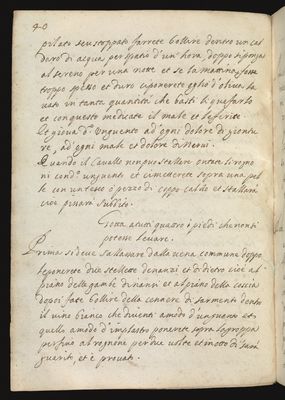 40
pilato seu stoppato farrete bollire dentro un cal
daro di acqua per spatio d'un hora, doppo si ponga
al sereno per una notte et se la matina fosse
troppo spesso et duro ci ponerete oglio d'oliva la
vati in tante quantità che basti liquefarlo
et con questo medicate il male et le ferite
et giova d.º Unguento ad ogni dolore di giontu
re, ad ogni male et dolore di Nervi.
Quando il Cavallo non può stallare ontate li rogno
ni con d.º unguento et ci metterete sopra una pel
le con un testo ò pezzo di coppo caldo et stallarà
cioè pisarà subbito.
Gotta a tutti quattro i piedi che non ti
potesse levare.
Prima si deve sallassare dalla vena commune doppo
le ponerete due stellette denanzi et di dietro cioè al
piano delle gambe dinanzi et al piano della coscia
dopoi fate bollire della cennere di sarmenti dentro
il vino bianco che diventi à modo d'unguento et
quello à modo d'implastro ponerete sopra la groppa
per fino al rognone per due volte et in otto dì sarà
guarito, et è provato.